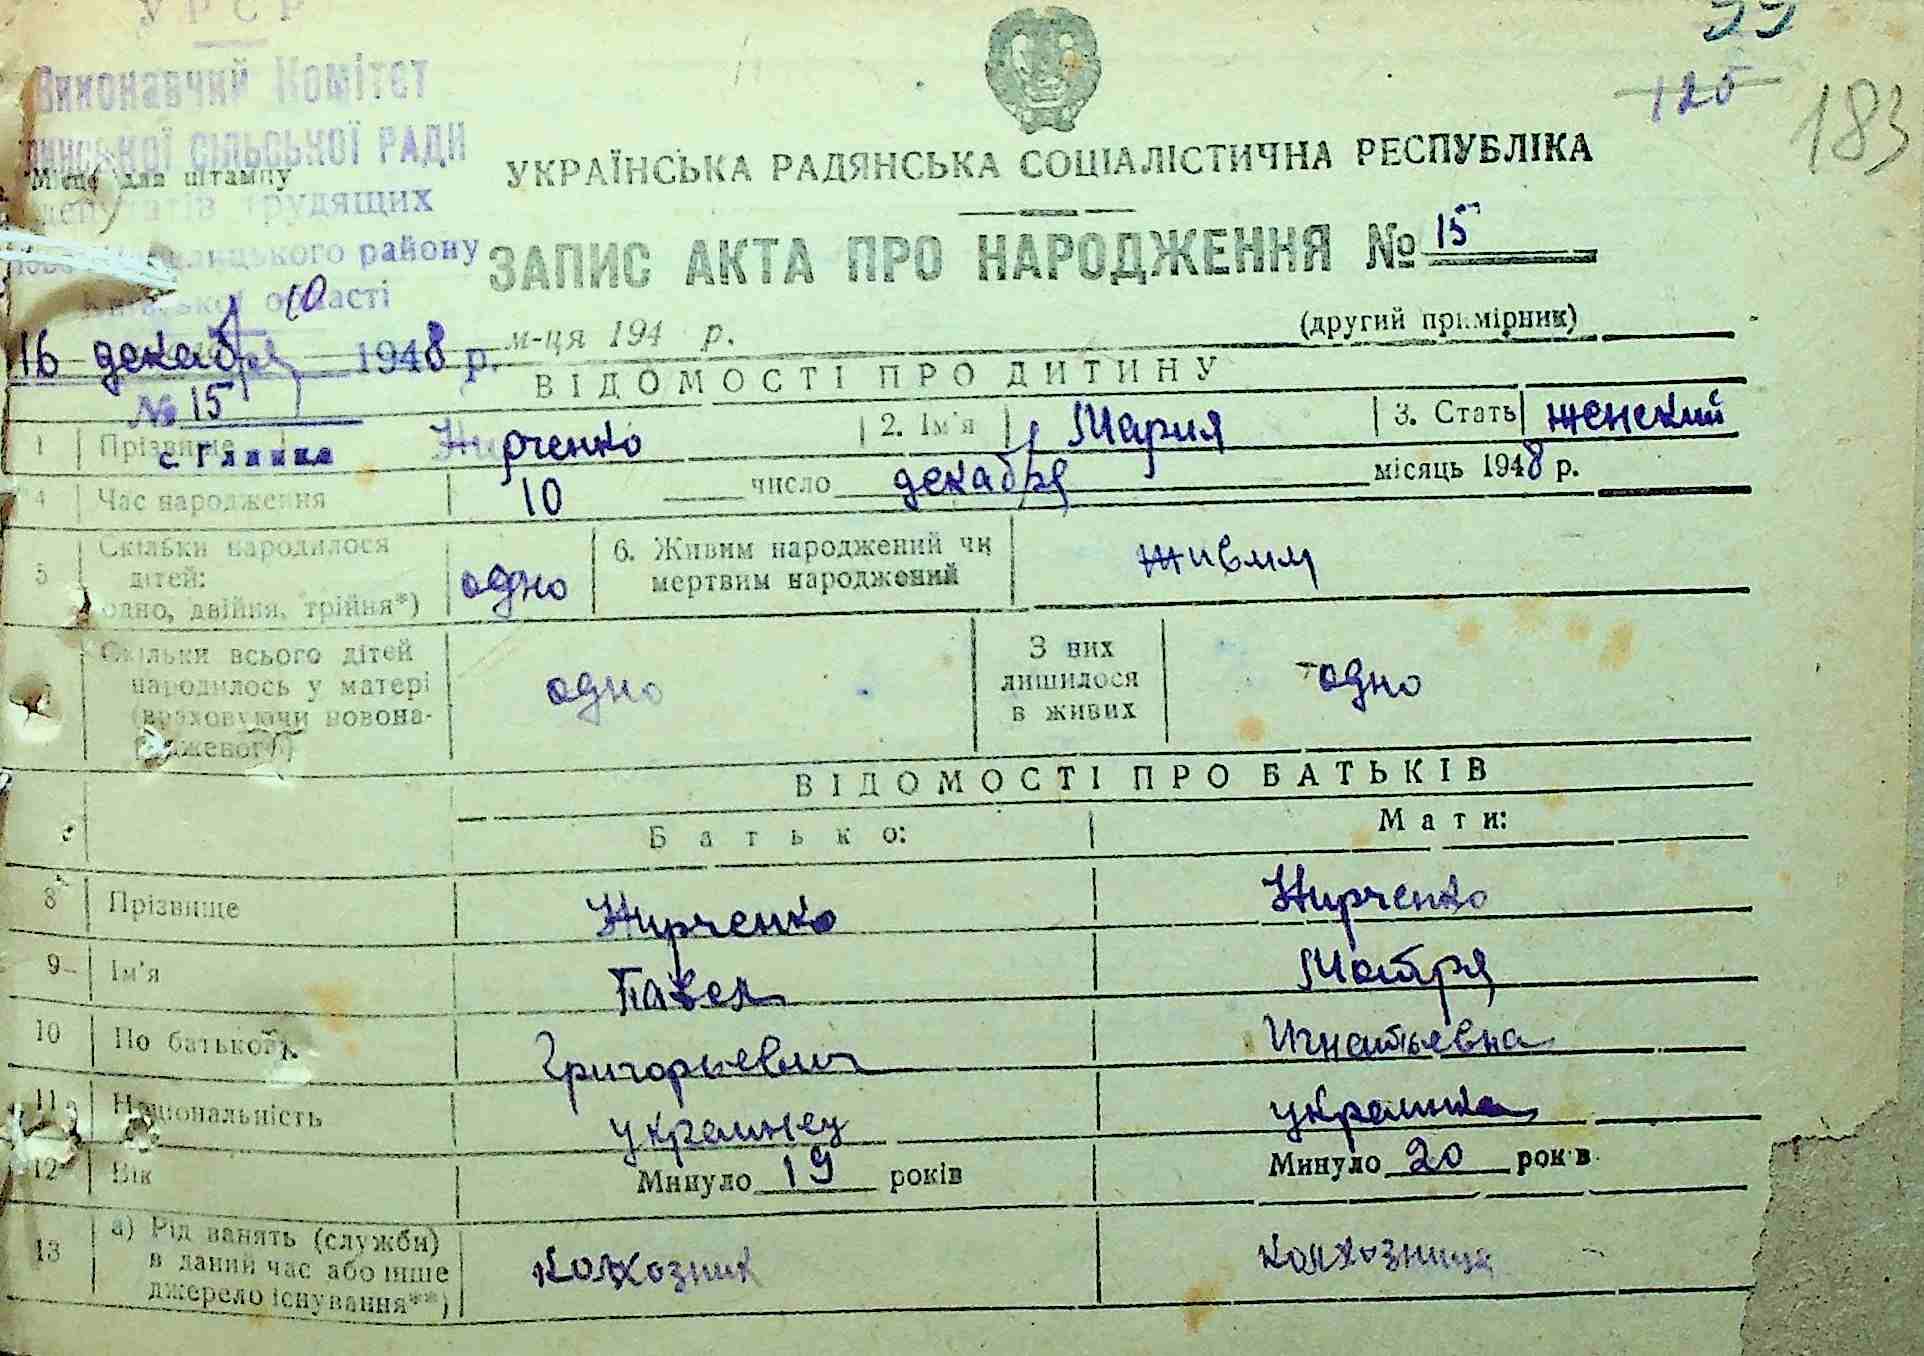 УРСР
Виконавчий Комітет
СІЛЬСЬКОЇ РАДИ
Місце для штампу
депутатів трудящих
району
Київської області
10
16 декабря 1948 р.
№ 15
с. Глинка
55
125
183
УКРАЇНСЬКА РАДЯНСЬКА СОЦІАЛІСТИЧНА РЕСПУБЛІКА
ЗАПИС АКТА ПРО НАРОДЖЕННЯ № 15
м-ця 194 р. (другий примірник)
ВІДОМОСТІ ПРО ДИТИНУ
1 Прізвище Жирченко 2. Ім'я Мария 3. Стать женский
4 Час народження 10 число декабря місяць 1948 р.
5 Скільки народилося дітей: одно, двійня, трійня*) одно 6. Живим народжений чи мертвим народжений живим
7 Скільки всього дітей народилось у матері (враховуючи новонародженого) одно З них лишилося в живих одно
ВІДОМОСТІ ПРО БАТЬКІВ
Батько: Мати:
8 Прізвище Жирченко Жирченко
9 Ім'я Павел Мотря
10 По батькові Григорьевич Игнатьевна
11 Національність украинец украинка
12 Вік Минуло 19 років Минуло 20 років
13 а) Рід занять (служби) в даний час або інше джерело існування**) колхозник колхозница